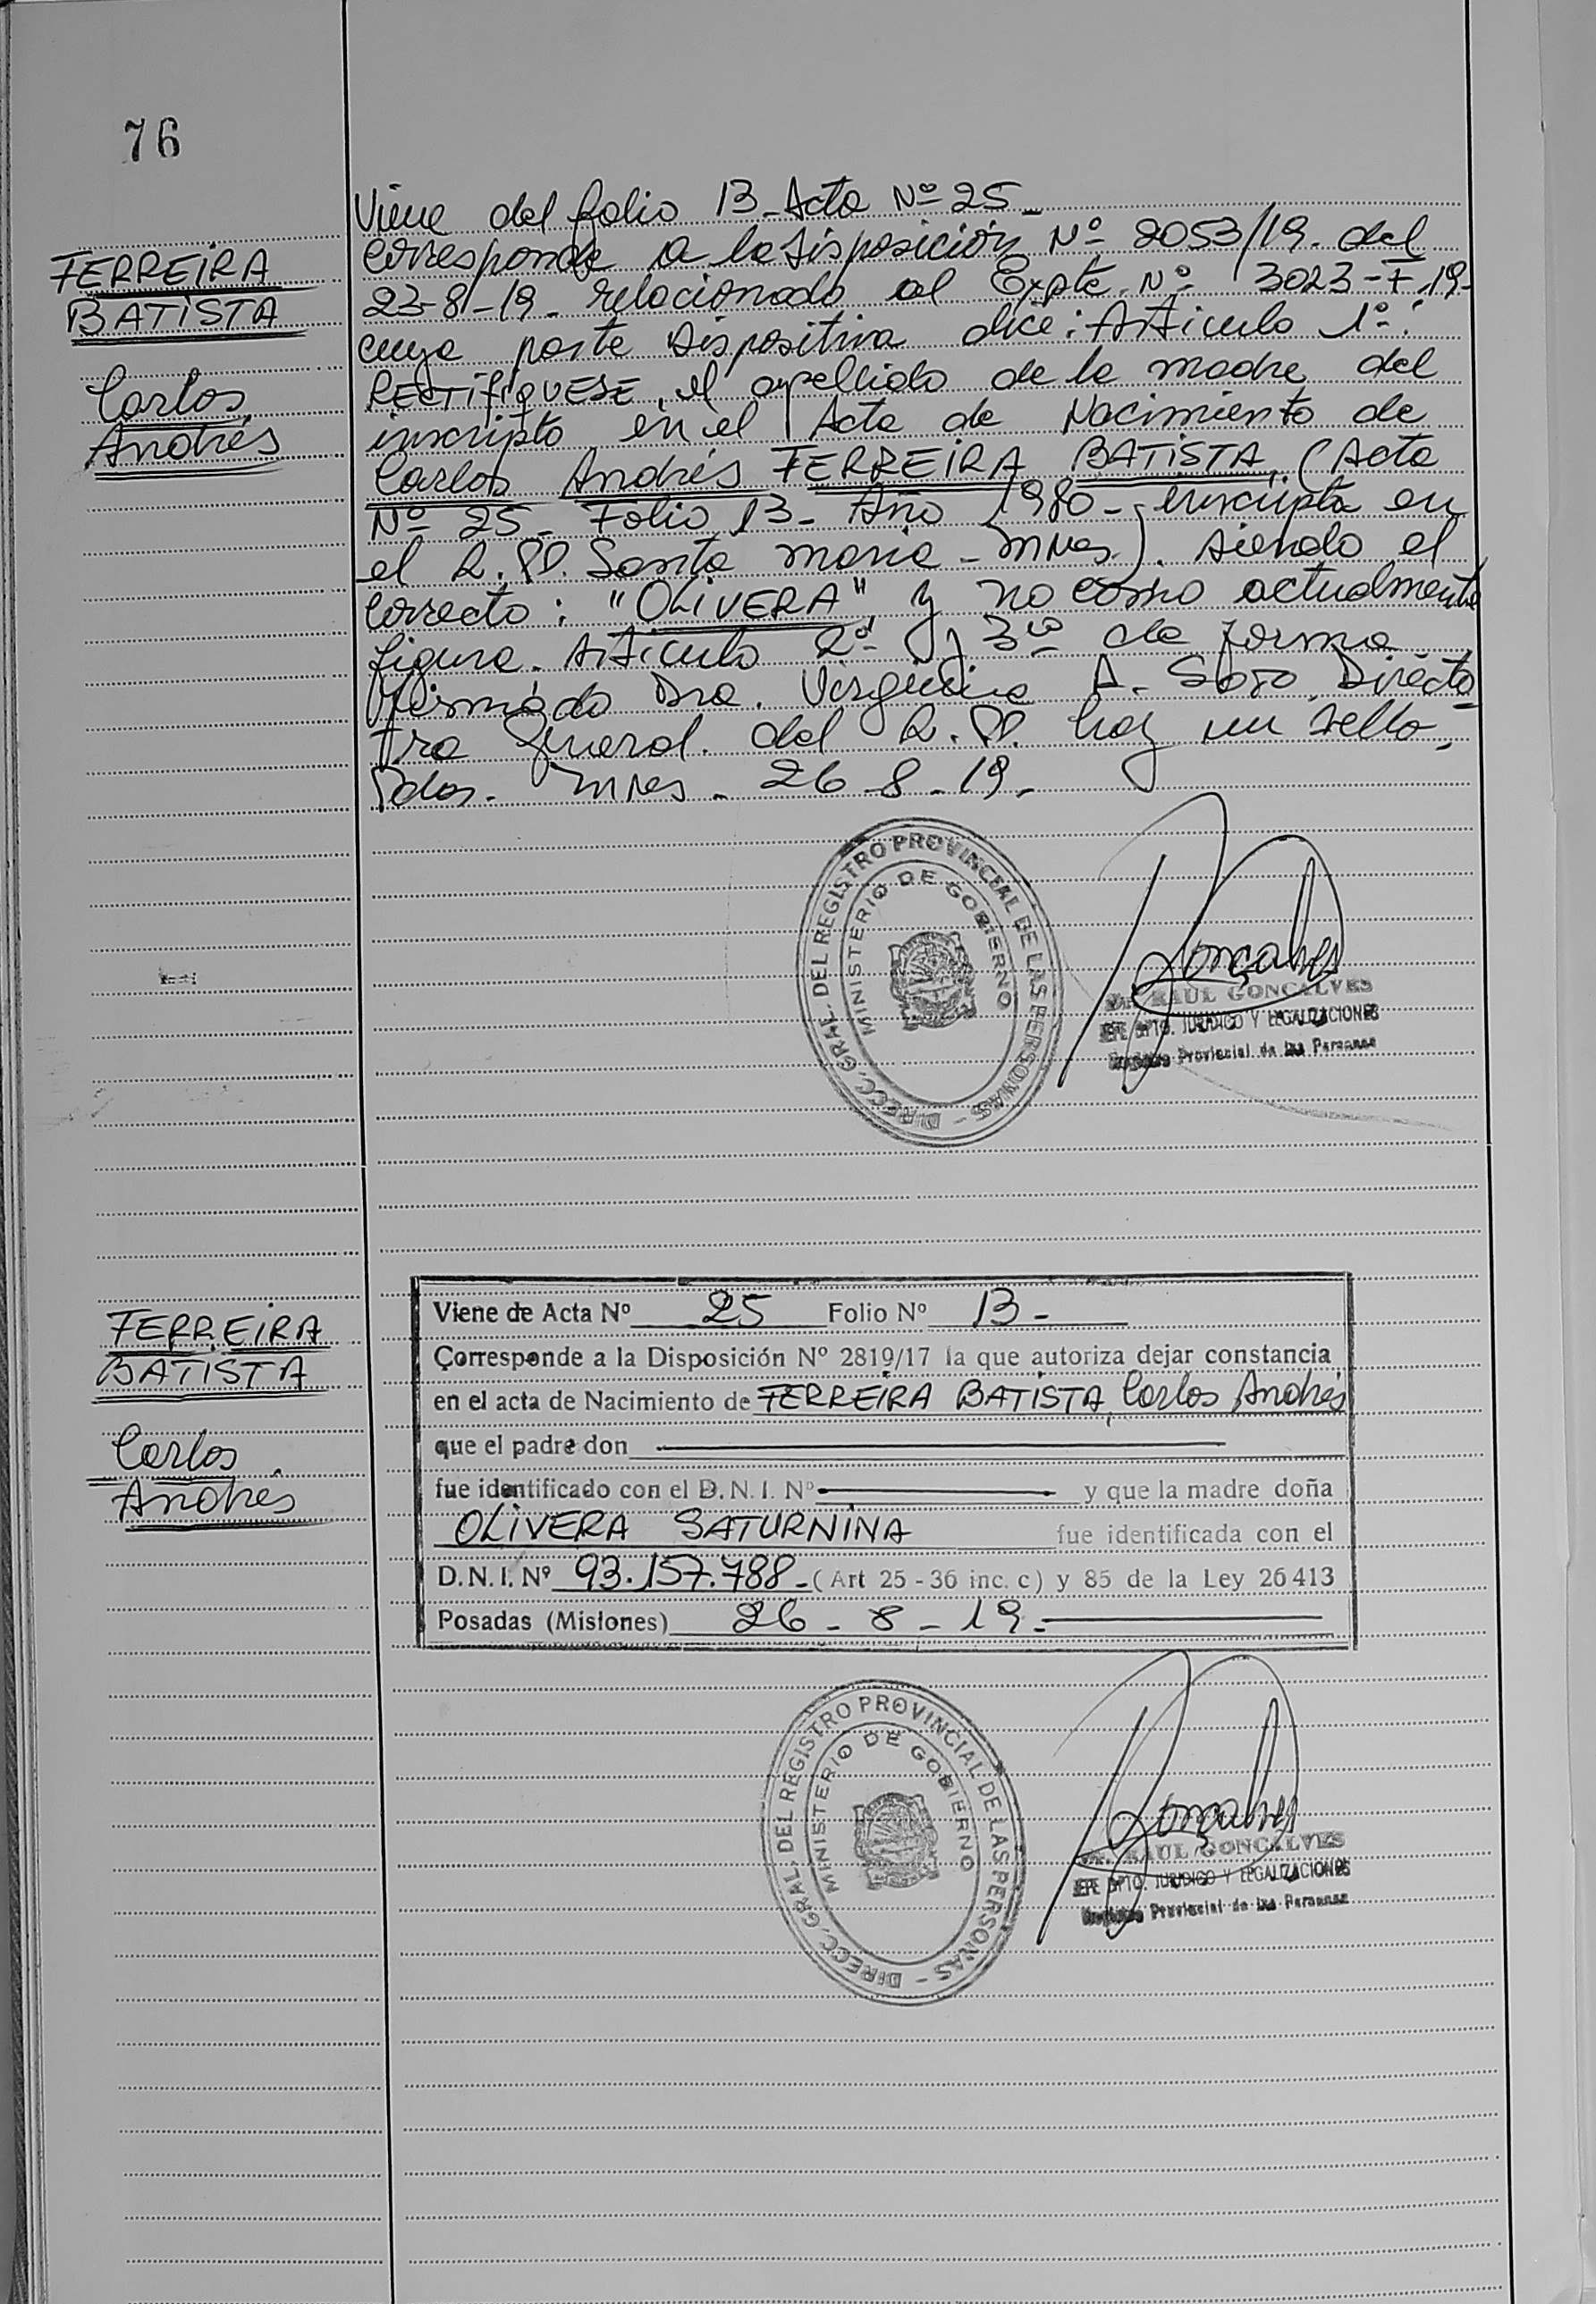 76
FERREIRA
BATISTA
Carlos
Andrés
Viene del folio 13-Acta Nº 25-
corresponde a la Disposición Nº 2053/19. del
23-8-19- relacionado al Expte. Nº 3023-F-19-
cuya parte Dispositiva dice: Artículo 1º:
RECTIFIQUESE, el apellido de la madre del
inscripto en el Acta de Nacimiento de
Carlos Andrés FERREIRA BATISTA, (Acta
Nº 25- Folio 13- Año 1980- inscripta en
el R.P.P. Santa Maria - Mnes). siendo el
correcto: "OLIVERA" y no como actualmente
figura. Artículo 2º y 3º de forma
firmado Dra. Virginia A. Soto, Directo
ra General. del R.P.P. hay un sello.
Pdas. Mnes. 26-8-19-
DIRECC. GRAL. DEL REGISTRO PROVINCIAL DE LAS PERSONAS -
MINISTERIO DE GOBIERNO
Gonçalves
Dr. RAUL GONCALVES
JEFE DPTO. JURIDICO Y LEGALIZACIONES
Registro Provincial de las Personas
FERREIRA
BATISTA
Carlos
Andrés
Viene de Acta Nº 25 Folio Nº 13-
Corresponde a la Disposición Nº 2819/17 la que autoriza dejar constancia
en el acta de Nacimiento de FERREIRA BATISTA, Carlos Andrés
que el padre don
fue identificado con el D.N.I. Nº y que la madre doña
OLIVERA SATURNINA fue identificada con el
D.N.I. Nº 93.157.788-(Art 25-36 inc. c) y 85 de la Ley 26413
Posadas (Misiones) 26-8-19-
DIRECC. GRAL. DEL REGISTRO PROVINCIAL DE LAS PERSONAS -
MINISTERIO DE GOBIERNO
Gonçalves
Dr. RAUL GONCALVES
JEFE DPTO. JURIDICO Y LEGALIZACIONES
Registro Provincial de las Personas